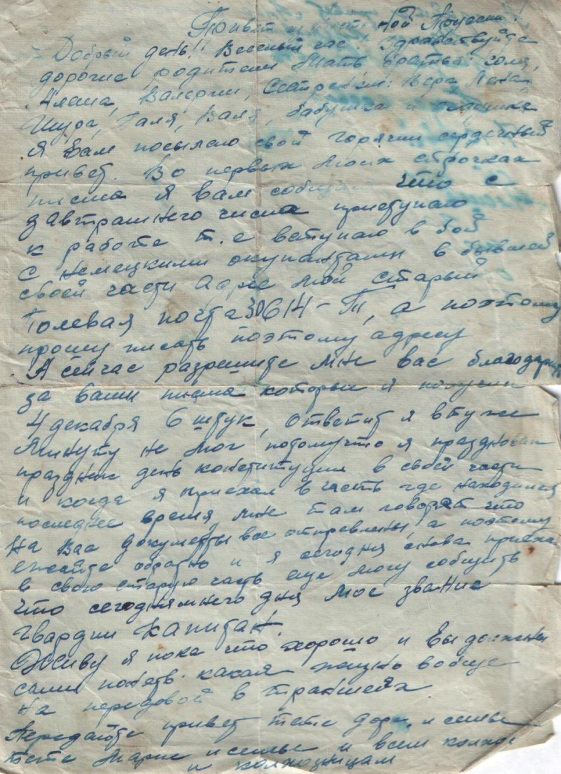 Привет мой
Добрый день! Веселый час! Здравствуйте
дорогие родители Мать братья: Коля,
Алеша, Валерии, Сестренки: Вера, Лена
Шура, Галя, Валя, бабушка и
я вам посылаю свой горячий сердечный
привет. Во первых моих строчках
письма я вам сообщаю что с
завтрашнего числа приступаю
к работе т.е вступаю в бой
с немецкими окупантами в бывшей
своей части адрес мой старый
Полевая почта 30614-П, а поэтому
прошу писать поэтому адресу
А сейчас разрешите мне вас благодарить
за ваши письма которые я получил
4 декабря 6 штук, ответит я в туже
минуту не мог потомучто я праздновал
праздник день конституции в своей части
и когда я приехал в часть где находился
последнее время, мне там говорят что
на Вас документы все отправлены, а поэтому
езжайте обратно и я сегодня снова приехал
в свою старую часть еще могу сообщить
что сегодняшнего дня мое звание
гвардии капитан.
Живу я пока что хорошо и Вы должны
сами понять какая жизнь вообще
на передовой в траншеях.
Передайте привет тете и семье
тете Марие и семье и всем
и колхозницам